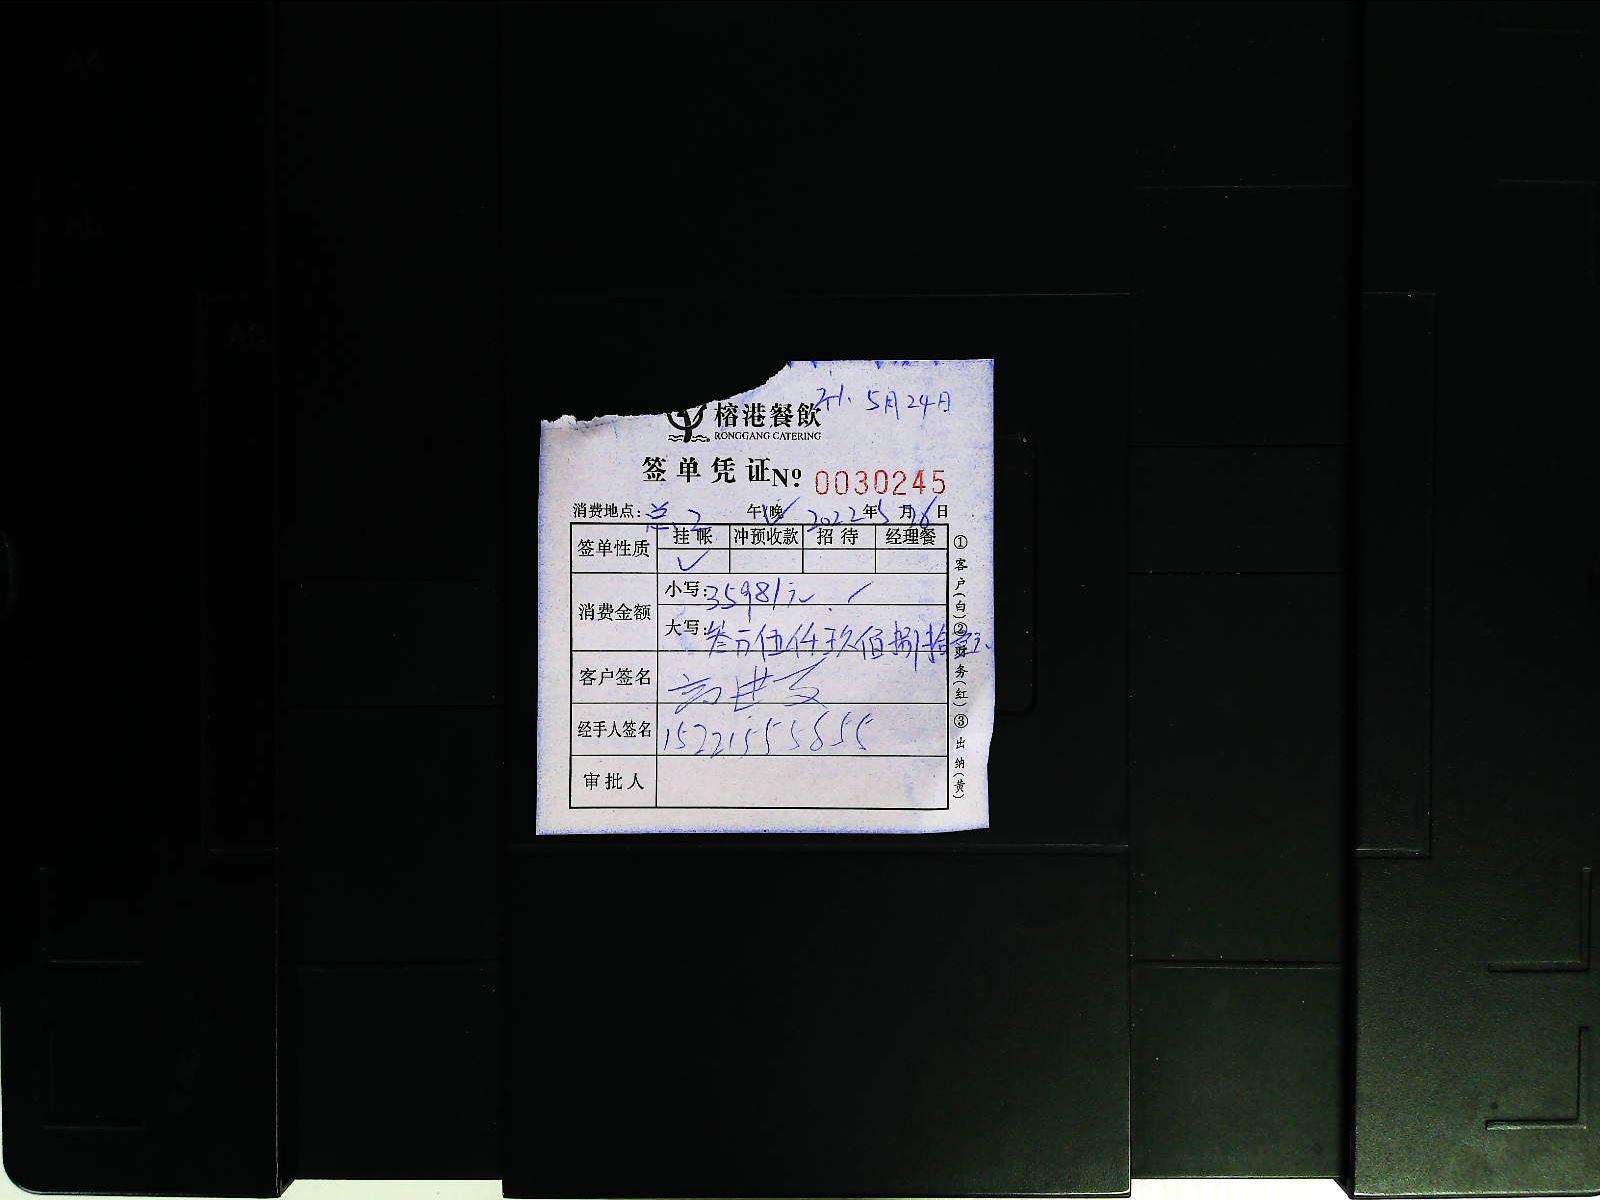 5月24日
榕港餐飲
RONGGANG CATERING
签单凭证 Nº 0030245
消费地点: 总 2 午 晚 ✓ 2022年5月26日
签单性质 挂帐 冲预收款 招待 经理餐
✓
消费金额 小写: 35981元
大写: 叁万伍仟玖佰捌拾壹元
客户签名
经手人签名 15221555855
审批人
①客户(白)②财务(红)③出纳(黄)